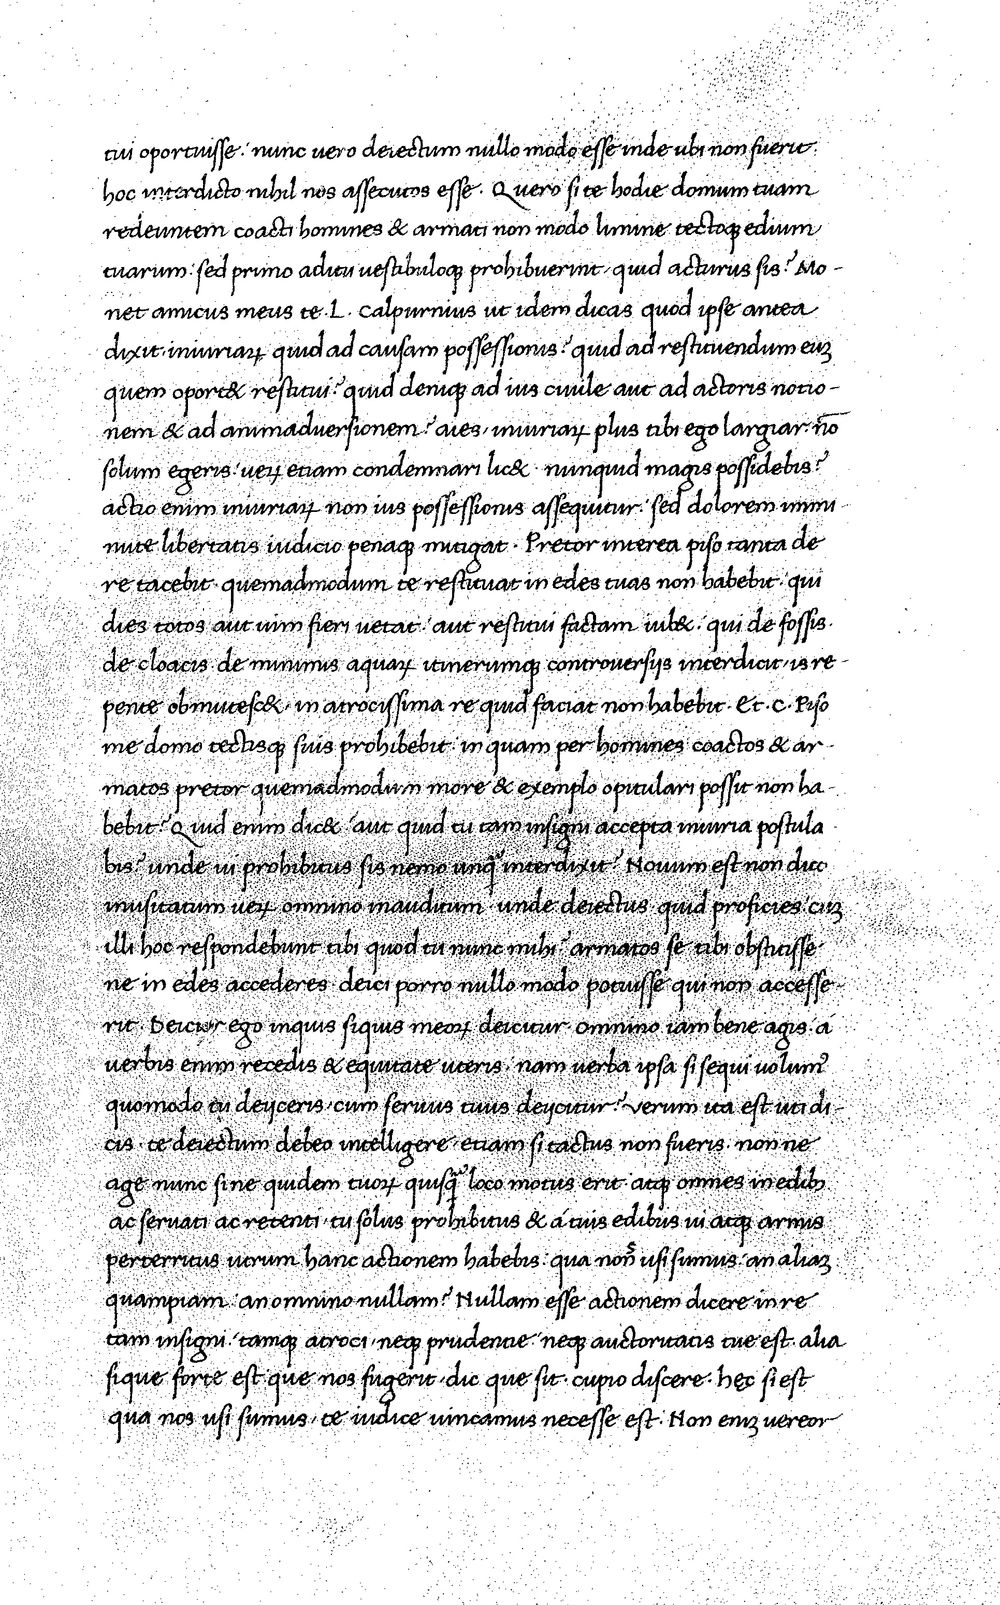 tui oportuisse: nunc uero deiectum nullo modo esse inde ubi non fuerit:
hoc interdicto nihil nos assecutos esse. Quero si te hodie domum tuam
redeuntem coacti homines & armati non modo limine tectoqꝫ edium
tuarum: sed primo aditu uestibuloqꝫ prohibuerint, quid acturus sis? Mo-
net amicus meus te .L. Calpurnius ut idem dicas quod ipse antea
dixit, iniuriaꝝ. quid ad causam possessionis? quid ad restituendum euꝫ
quem oport& restitui? quid deniqꝫ ad ius ciuile aut ad actoris notio-
nem & ad animaduersionem? aies, iniuriaꝝ plus tibi ego largiar: nō
solum egeris: ueꝝ etiam condemnari lic&. nunquid magis possidebis?
actio enim iniuriaꝝ non ius possessionis assequitur: sed dolorem immi-
nute libertatis iudicio penaqꝫ mitigat. Pretor interea piso tanta de
re tacebit. quemadmodum te restituat in edes tuas non habebit: qui
dies totos aut uim fieri uetat: aut restitui factam iub&: qui de fossis.
de cloacis de minimis aquaꝝ itinerumqꝫ controuersijs interdicit, is re-
pente obmutesc&, in atrocissima re quid faciat non habebit. Et .C. Piso
me domo tectisqꝫ suis prohibebit: in quam per homines coactos & ar-
matos pretor quemadmodum more & exemplo opitulari possit non ha-
bebit? Quid enim dic&? aut quid tu tam insigni accepta iniuria postula
bis? unde ui prohibitus sis nemo unq̃ interdixit? Nouum est non dico
inusitatum ueꝝ omnino inauditum. unde deiectus quid proficies cuꝫ
illi hoc respondebunt tibi quod tu nunc mihi? armatos se tibi obstitisse
ne in edes accederes. deici porro nullo modo potuisse qui non accesse-
rit. Deicior ego inquis siquis meoꝝ deicitur. omnino iam bene agis. a
uerbis enim recedis & equitate uteris. nam uerba ipsa si sequi uolumꝰ
quomodo tu deijceris, cum seruus tuus deijcitur? Verum ita est uti di-
cis. te deiectum debeo intelligere, etiam si tactus non fueris. non ne
age nunc sine quidem tuoꝝ quisq̃ loco motus erit. atqꝫ omnes in edibꝫ
ac seruati ac retenti, tu solus prohibitus & a tuis edibus ui atqꝫ armis
perterritus utrum hanc actionem habebis: qua nos usi sumus: an aliaꝫ
quampiam: an omnino nullam? Nullam esse actionem dicere in re
tam insigni: tamqꝫ atroci, neqꝫ prudentie: neqꝫ auctoritatis tue est. alia
sique forte est que nos fugerit, dic que sit. cupio discere. hęc si est
qua nos usi sumus, te iudice uincamus necesse est. Non enīꝫ uereor